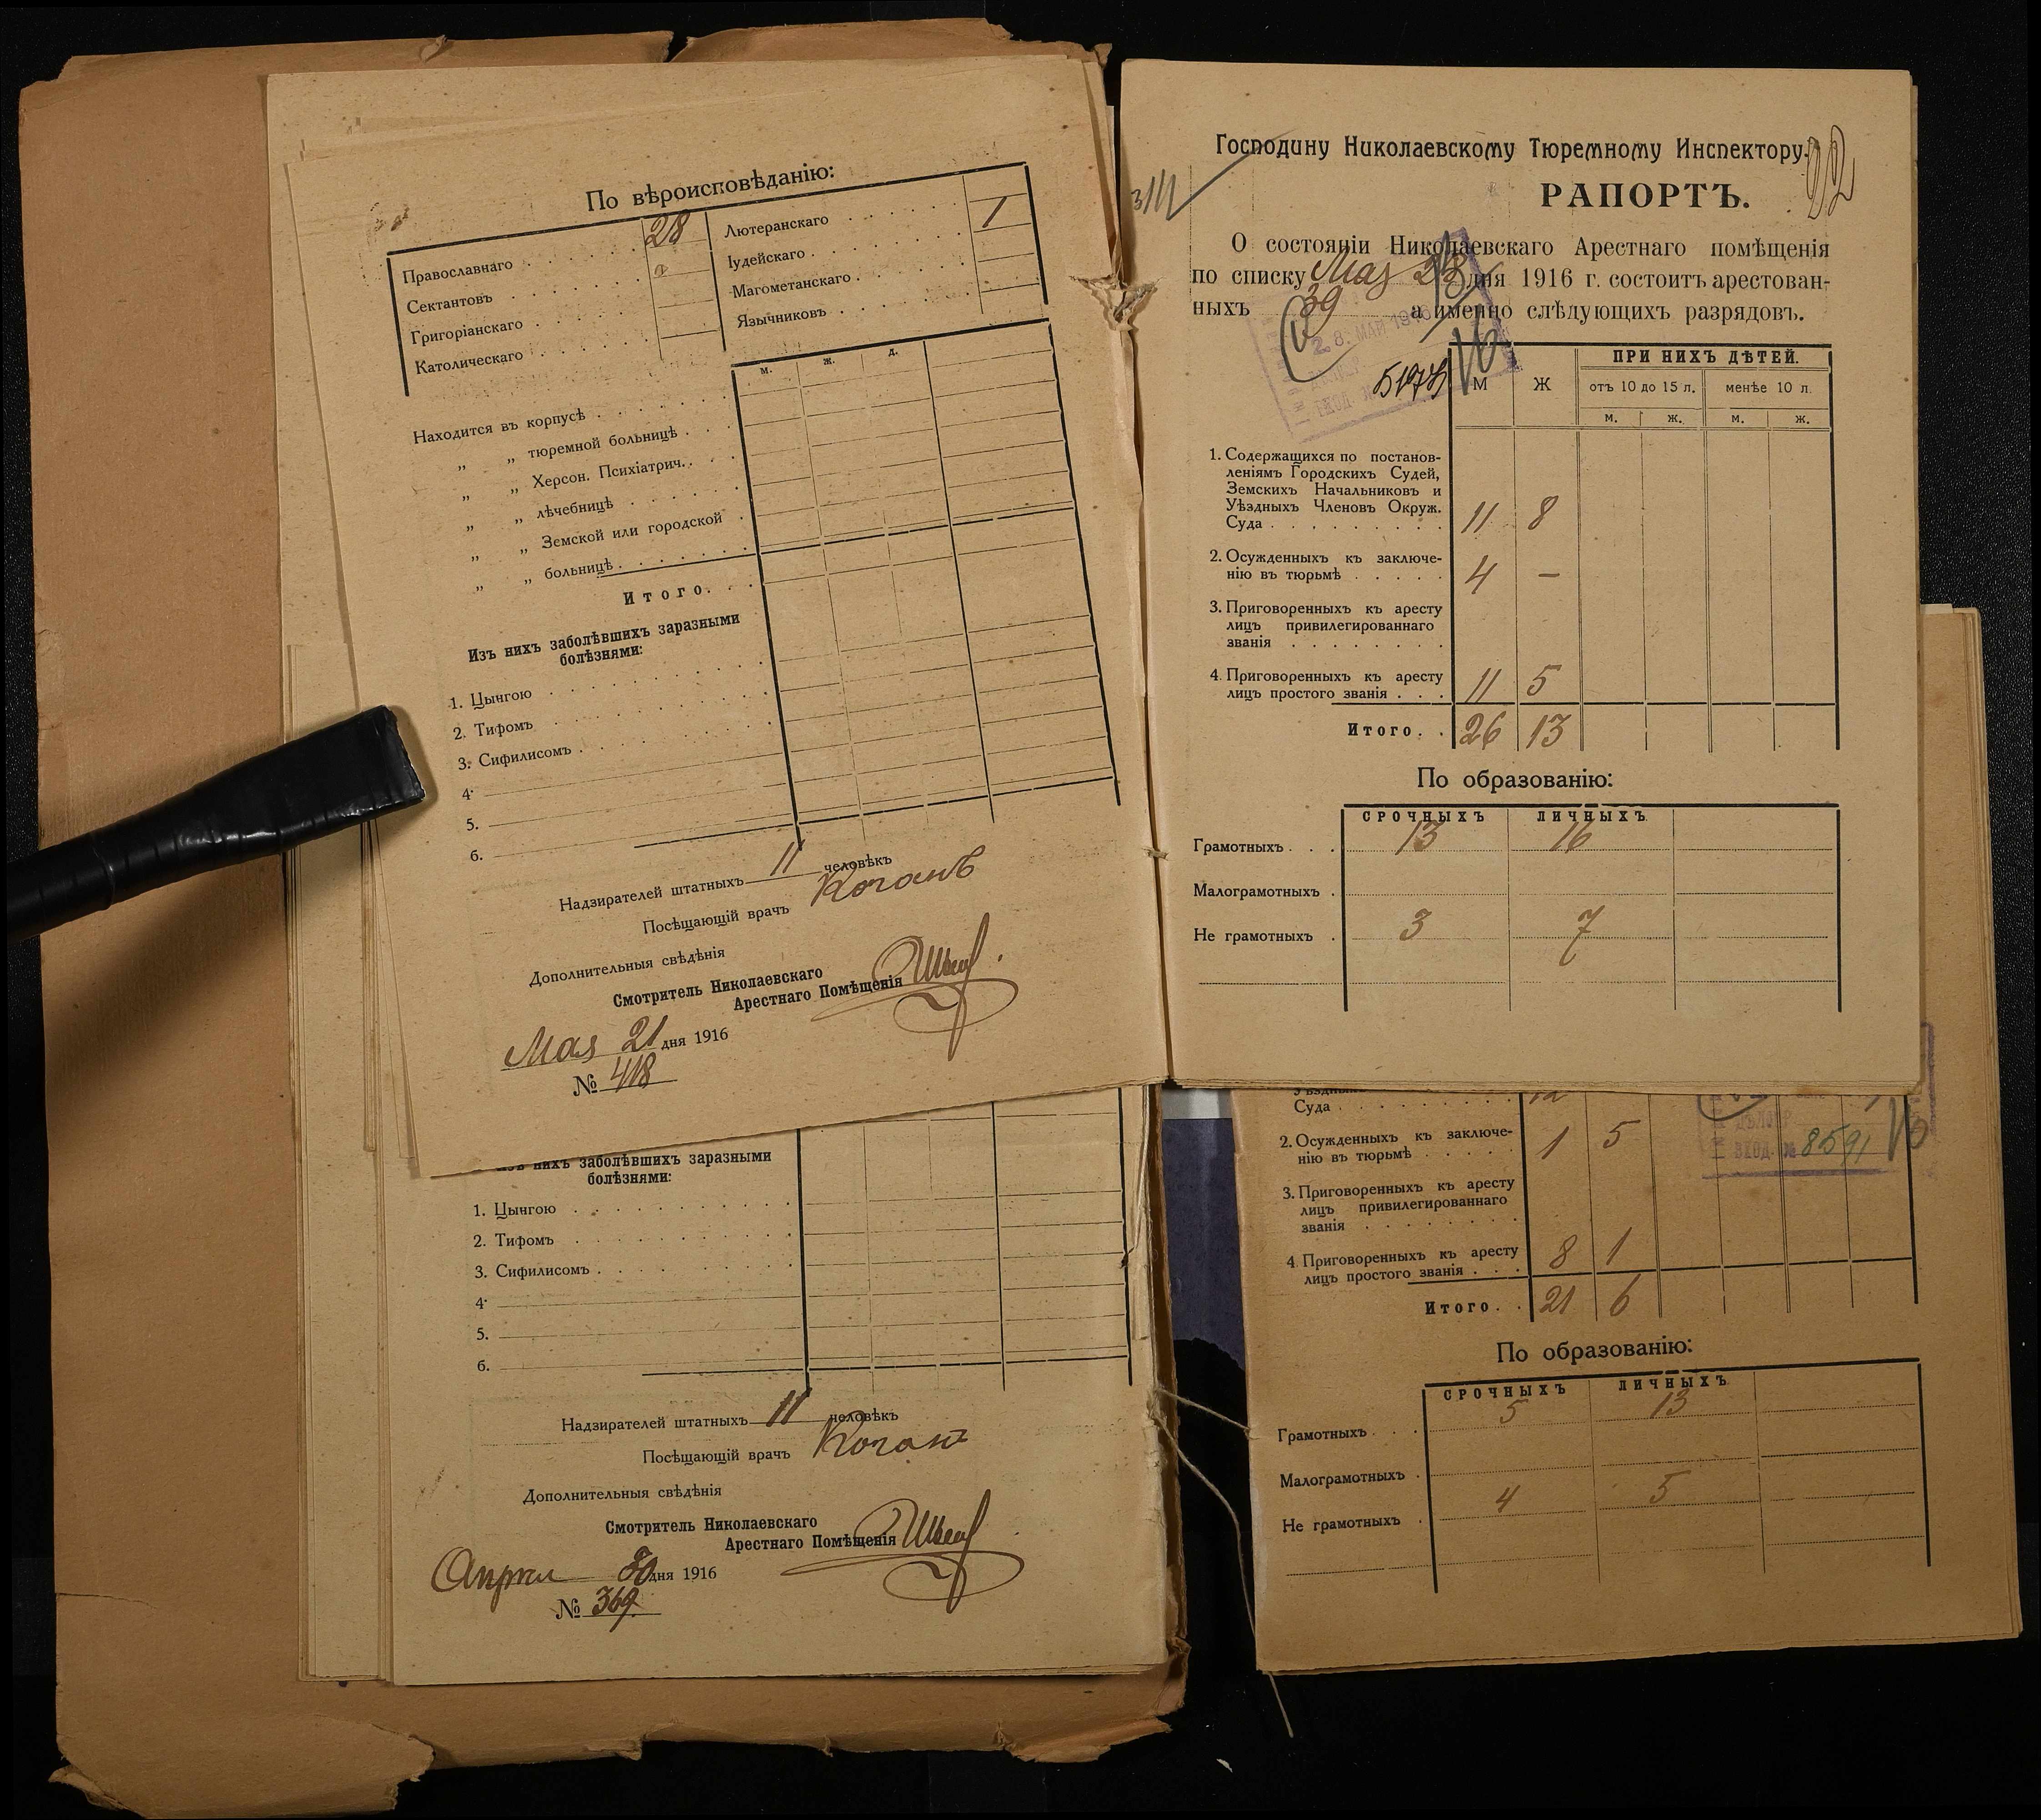 По вѣроисповѣданію:
Православнаго . . . . . . 28
Сектантовъ . . . . . . .
Григоріанскаго . . . . . .
Католическаго . . . . . .
Лютеранскаго . . . . . . 1
Іудейскаго . . . . . . .
Магометанскаго . . . . . .
Язычниковъ . . . . . .
м. ж. д.
Находится въ корпусѣ . . . . . .
„ „ тюремной больницѣ . . .
„ „ Херсон. Психіатрич. . . .
„ „ лѣчебницѣ . . . . . .
„ „ Земской или городской .
„ „ больницѣ . . . . . .
Итого. . .
Изъ нихъ заболѣвшихъ заразными
болѣзнями:
1. Цынгою . . . . . . . . .
2. Тифомъ . . . . . . . . .
3. Сифилисомъ . . . . . . . .
4.
5.
6.
Надзирателей штатныхъ 11 человѣкъ
Посѣщающій врачъ Коганъ
Дополнительныя свѣдѣнія
Смотритель Николаевскаго
Арестнаго Помѣщенія
Мая 21 дня 1916
№ 418
Изъ нихъ заболѣвшихъ заразными
болѣзнями:
1. Цынгою . . . . . . . . . .
2. Тифомъ . . . . . . . . . .
3. Сифилисомъ . . . . . . . .
4.
5.
6.
Надзирателей штатныхъ 11 человѣкъ
Посѣщающій врачъ Коганъ
Дополнительныя свѣдѣнія
Смотритель Николаевскаго
Арестнаго Помѣщенія
Апрѣля 30 дня 1916
№ 369.
Господину Николаевскому Тюремному Инспектору.
РАПОРТЪ.
О состояніи Николаевскаго Арестнаго помѣщенія
по списку Мая 28 дня 1916 г. состоитъ арестован-
ныхъ 39 а именно слѣдующихъ разрядовъ.
28. МАЙ 1916
ВХОД. №
М Ж ПРИ НИХЪ ДѢТЕЙ.
отъ 10 до 15 л. менѣе 10 л.
м. ж. м. ж.
1. Содержащихся по постанов-
леніямъ Городскихъ Судей,
Земскихъ Начальниковъ и
Уѣздныхъ Членовъ Окруж.
Суда . . . . . . . . . 11 8
2. Осужденныхъ къ заключе-
нію въ тюрьмѣ . . . . . 4 —
3. Приговоренныхъ къ аресту
лицъ привилегированнаго
званія . . . . . . . .
4. Приговоренныхъ къ аресту
лицъ простого званія . . . 11 5
Итого. . 26 13
По образованію:
СРОЧНЫХЪ ЛИЧНЫХЪ
Грамотныхъ . . . 13 16
Малограмотныхъ .
Не грамотныхъ . 3 7
Суда . . . . . . . . .
2. Осужденныхъ къ заключе-
нію въ тюрьмѣ . . . . . 1 5
ВХОД. № 8591
3. Приговоренныхъ къ аресту
лицъ привилегированнаго
званія . . . . . . . .
4. Приговоренныхъ къ аресту
лицъ простого званія . . . 8 1
Итого. . 21 6
По образованію:
СРОЧНЫХЪ ЛИЧНЫХЪ
Грамотныхъ . . . 5 13
Малограмотныхъ .
Не грамотныхъ . 4 5